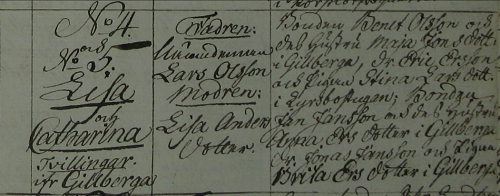 No 4.
och
No 5.
Lisa
och
Catharina
Tvillingar.
ifr Gillberga
Fadren:
Lars Olsson
Modren:
Lisa Anders
Dotter.
Bonden Bengt Olsson och
des Hustru Maja Jons dott
i Gillberga, Dr. Eric Ersson
och Pigan Stina Lars dott.
i Kyrkostugan, Bonden
Jan Jansson och des Hustru
Anna Ers Dotter i Gillberga
Dr. Jonas Jansson och Pigan
Brita Ers Dotter i Gillberga